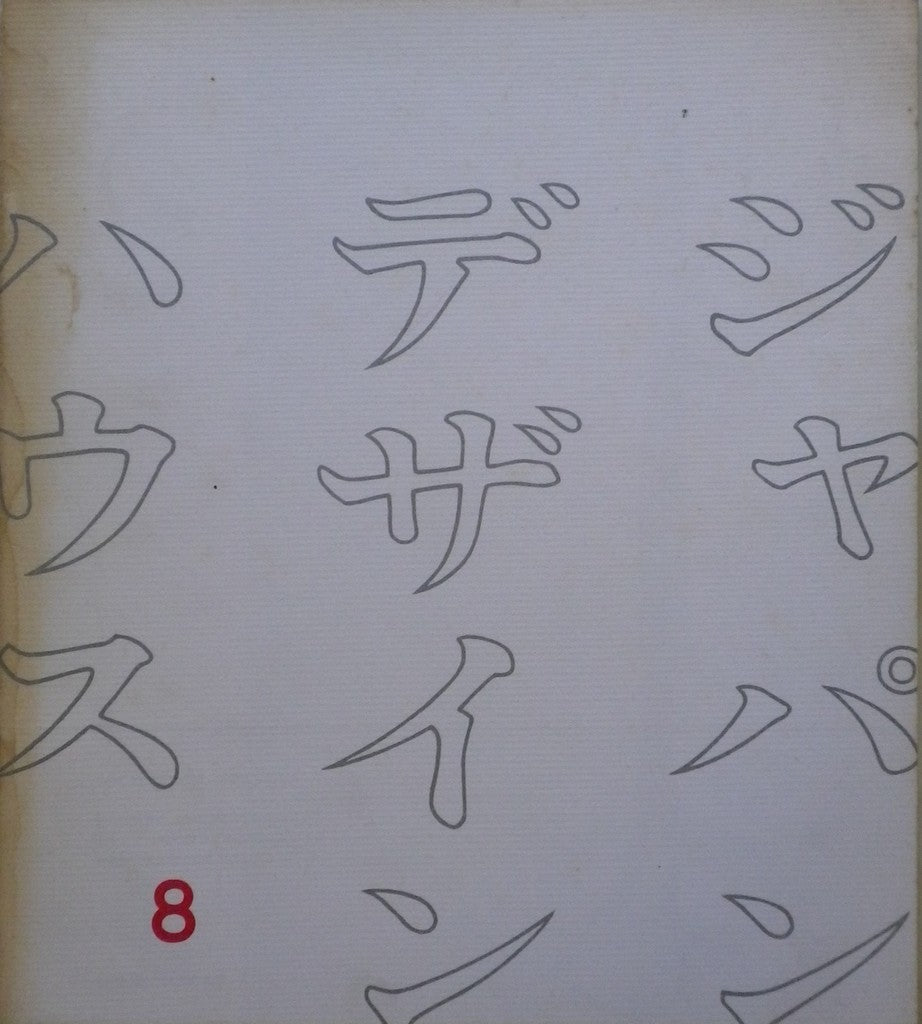 ジャパン
デザイン
ハウス
8